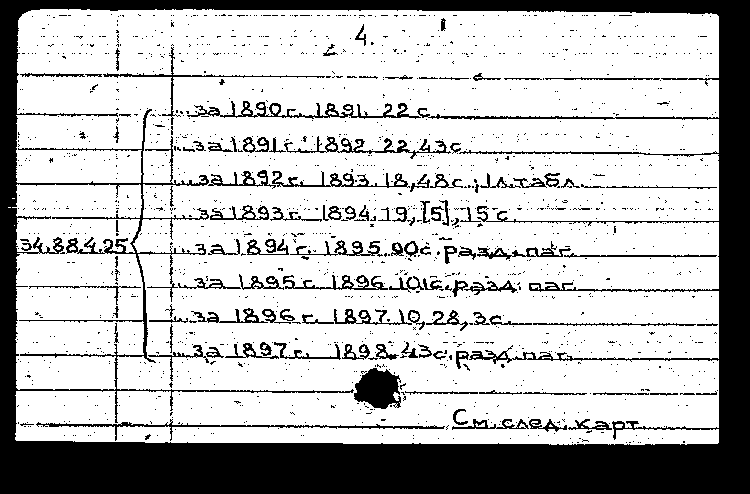 4.
...за 1890г. 1891. 22 с.
...за 1891г. 1892. 22,43с.
...за 1892г. 1893. 18,48с.; 1л.табл.
...за 1893г. 1894. 19, [5], 15 с.
34.88.4.25 ...за 1894г. 1895. 90с. разд. паг.
...за 1895г. 1896. 101с. разд. паг.
...за 1896г. 1897. 10, 28, 3с.
...за 1897г. 1898. 43с. разд. паг.
См. след. карт.